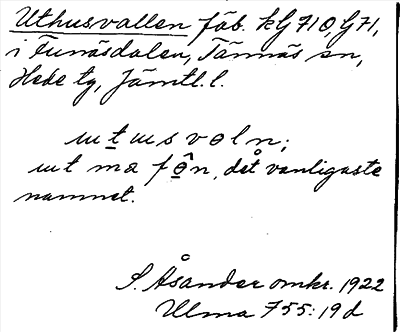 Uthusvallen fäb. kG 710, G 71,
i Funäsdalen, Tännäs sn,
Hede tg, Jämtl. l.
ut us voln;
ut ma fôn, det vanligaste
namnet.
S. Åsander omkr. 1922
Ulma 755:19d